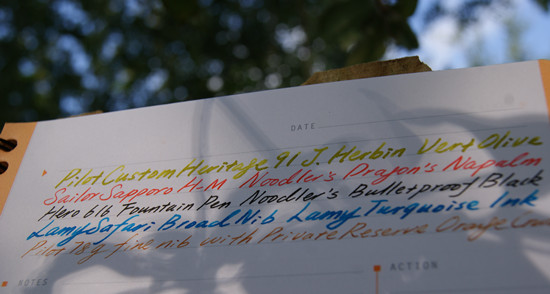 DATE
Pilot Custom Heritage 91 J. Herbin Vert Olive
Sailor Sapporo H-M Noodler's Dragon's Napalm
Hero 616 Fountain Pen Noodler's Bulletproof Black
Lamy Safari Broad Nib Lamy Turquoise Ink
Pilot 78g fine nib with Private Reserve Orange
ACTION
NOTES